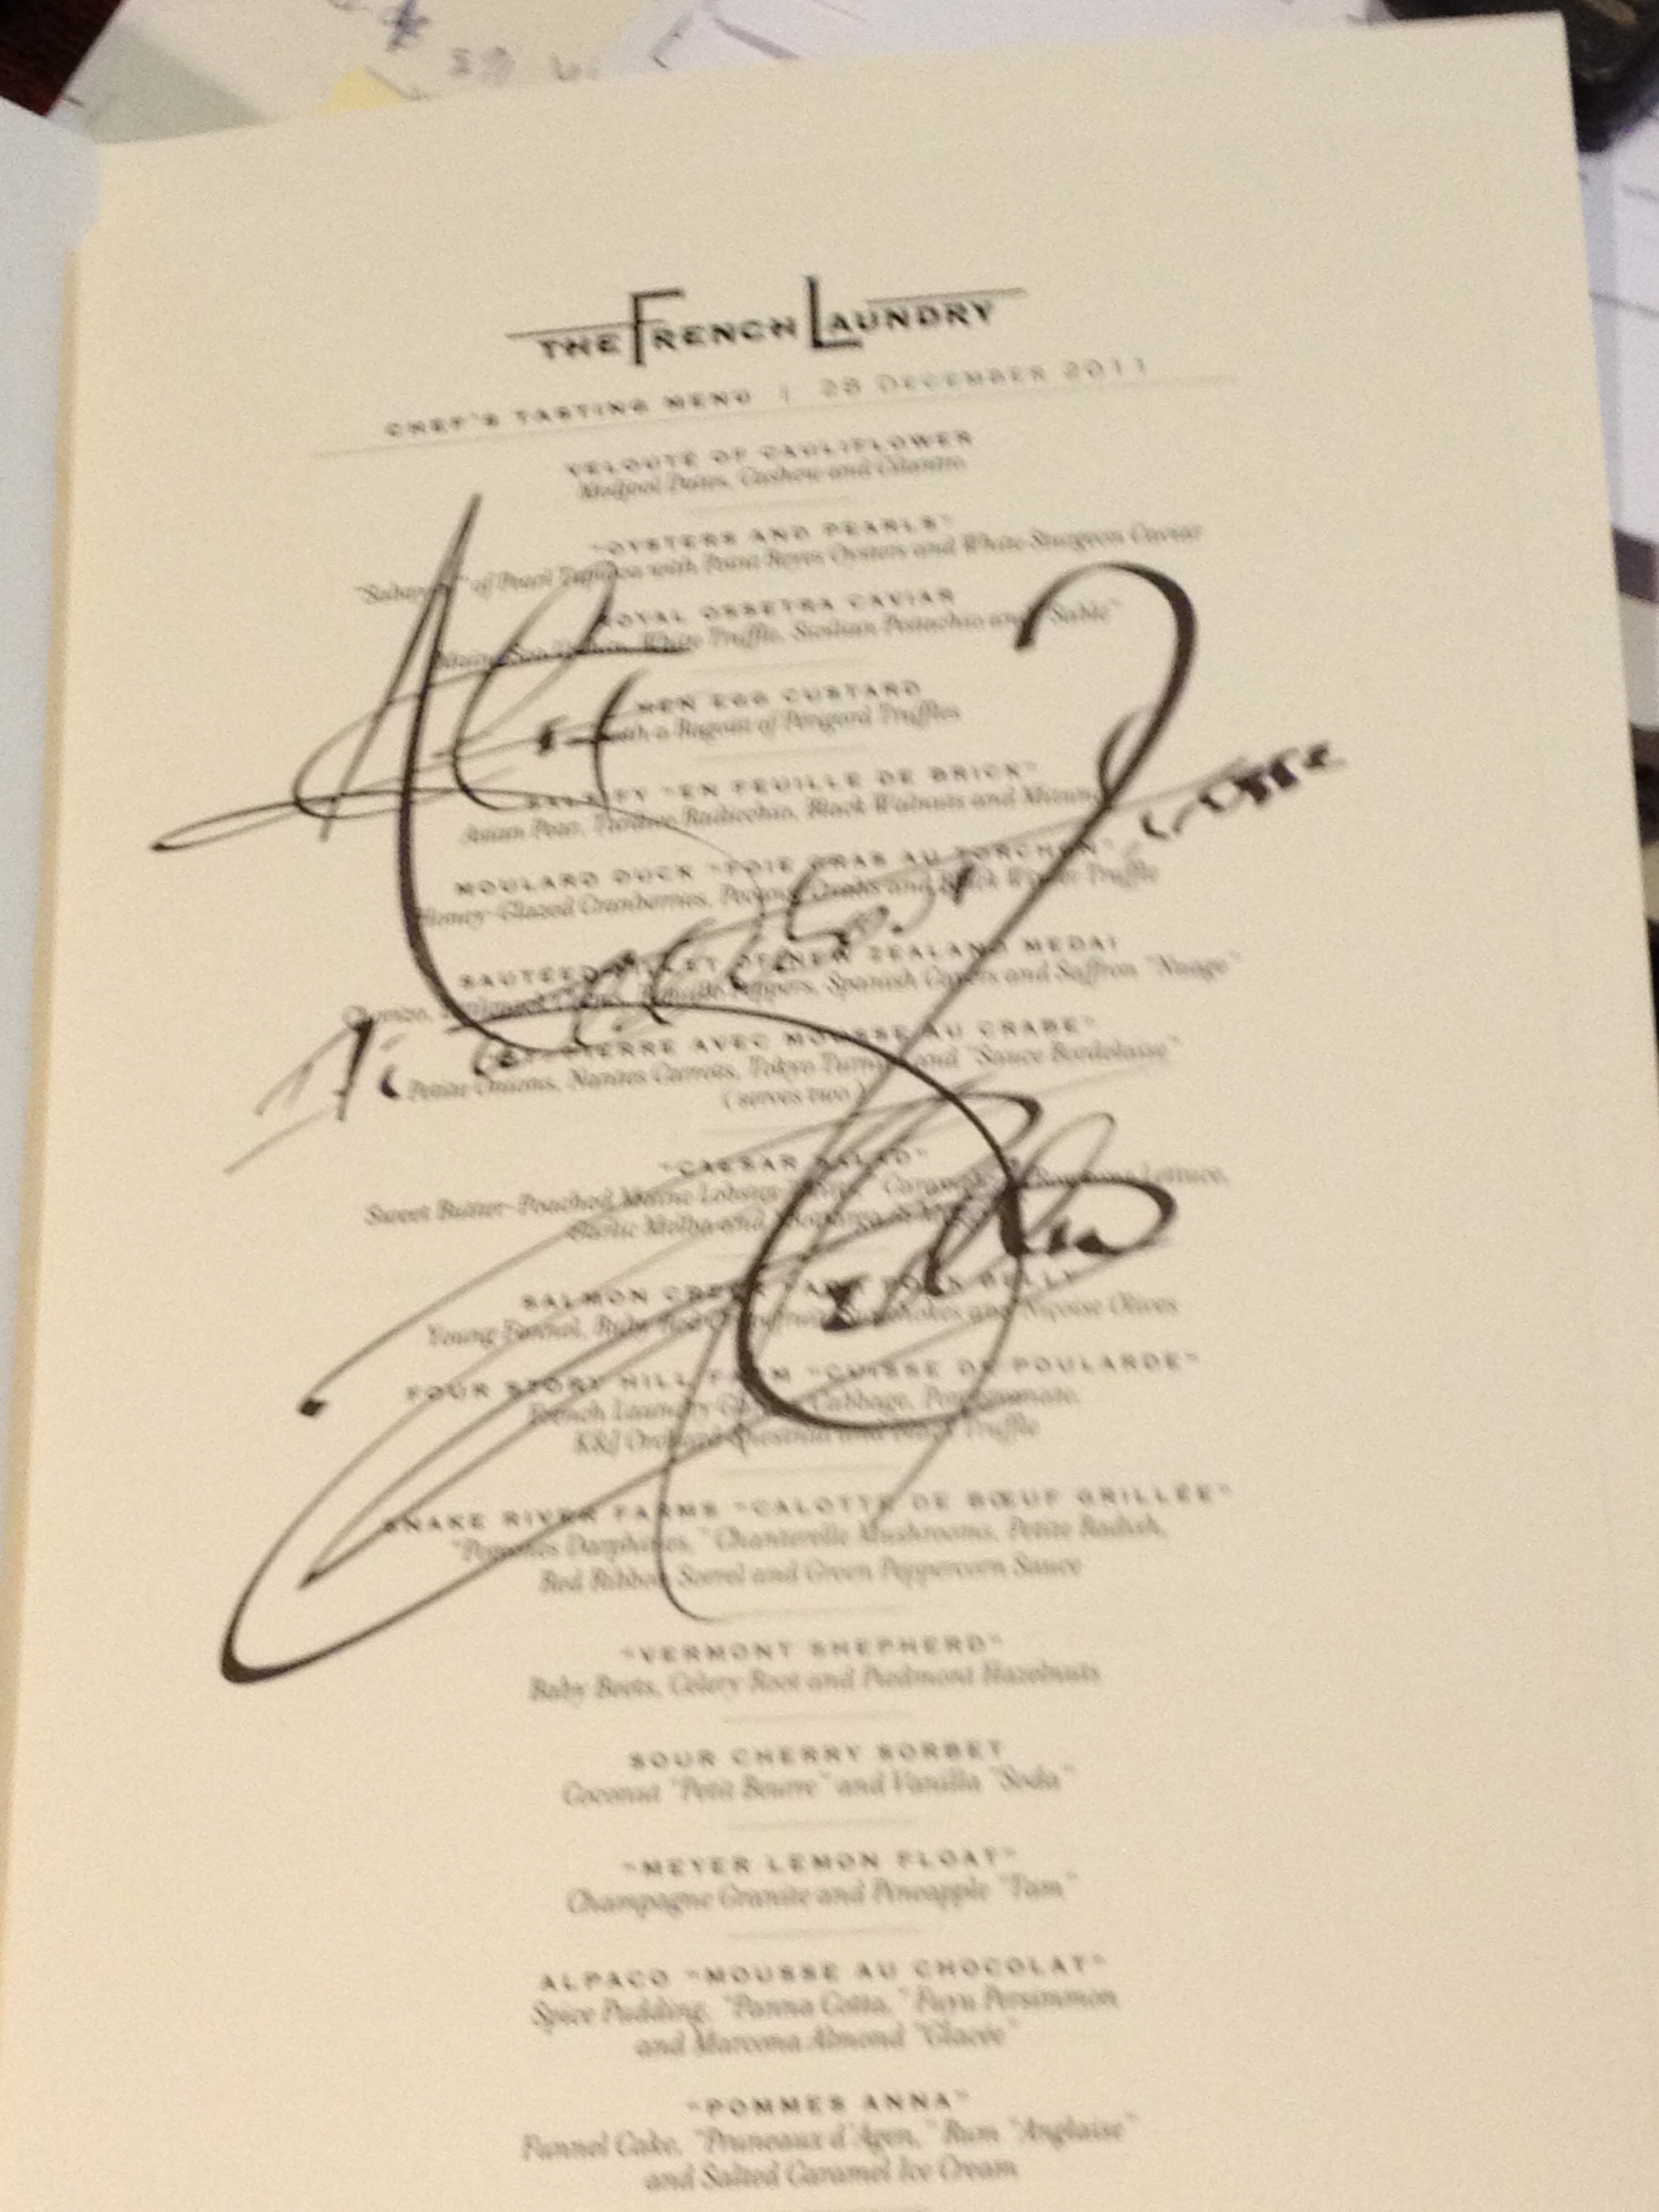 THE FRENCH LAUNDRY
CHEF'S TASTING MENU | 28 DECEMBER 2011
VELOUTÉ OF CAULIFLOWER
Medjool Dates, Cashew and Cilantro
"OYSTERS AND PEARLS"
of Pearl Tapioca with Point Reyes Oysters and White Sturgeon Caviar
ROYAL OSSETRA CAVIAR
White Truffle, Sicilian Pistachio and "Sablé"
HEN EGG CUSTARD
with a Ragout of Périgord Truffles
SALSIFY "EN FEUILLE DE BRICK"
Asian Pear, Radicchio, Black Walnuts and Mizuna
MOULARD DUCK "FOIE GRAS AU TORCHON"
Honey-Glazed Cranberries, and Black Winter Truffle
SAUTÉED FILLET OF NEW ZEALAND MEDAI
Peppers, Spanish Capers and Saffron "Nuage"
PIERRE AVEC MOUSSE AU CRABE"
Petite Onions, Nantes Carrots, Tokyo Turnips and "Sauce Bordelaise"
(serves two)
"CAESAR SALAD"
Sweet Butter-Poached Maine Lobster Lettuce,
Garlic Melba and
SALMON CREEK FARM PORK BELLY
Young Fennel, and Niçoise Olives
FOUR STORY HILL FARM "CUISSE DE POULARDE"
French Laundry Cabbage, Pomegranate,
K&J Orchard Chestnut and Black Truffle
SNAKE RIVER FARMS "CALOTTE DE BŒUF GRILLÉE"
"Pommes Darphines," Chanterelle Mushrooms, Petite Radish,
Red Ribbon Sorrel and Green Peppercorn Sauce
"VERMONT SHEPHERD"
Baby Beets, Celery Root and Piedmont Hazelnuts
SOUR CHERRY SORBET
Coconut "Petit Beurre" and Vanilla "Soda"
"MEYER LEMON FLOAT"
Champagne Granite and Pineapple
ALPACO "MOUSSE AU CHOCOLAT"
Spice Pudding, "Panna Cotta," Fuyu Persimmon
and Marcona Almond "Glacée"
"POMMES ANNA"
Funnel Cake, "Pruneaux d'Agen," Rum "Anglaise"
and Salted Caramel Ice Cream